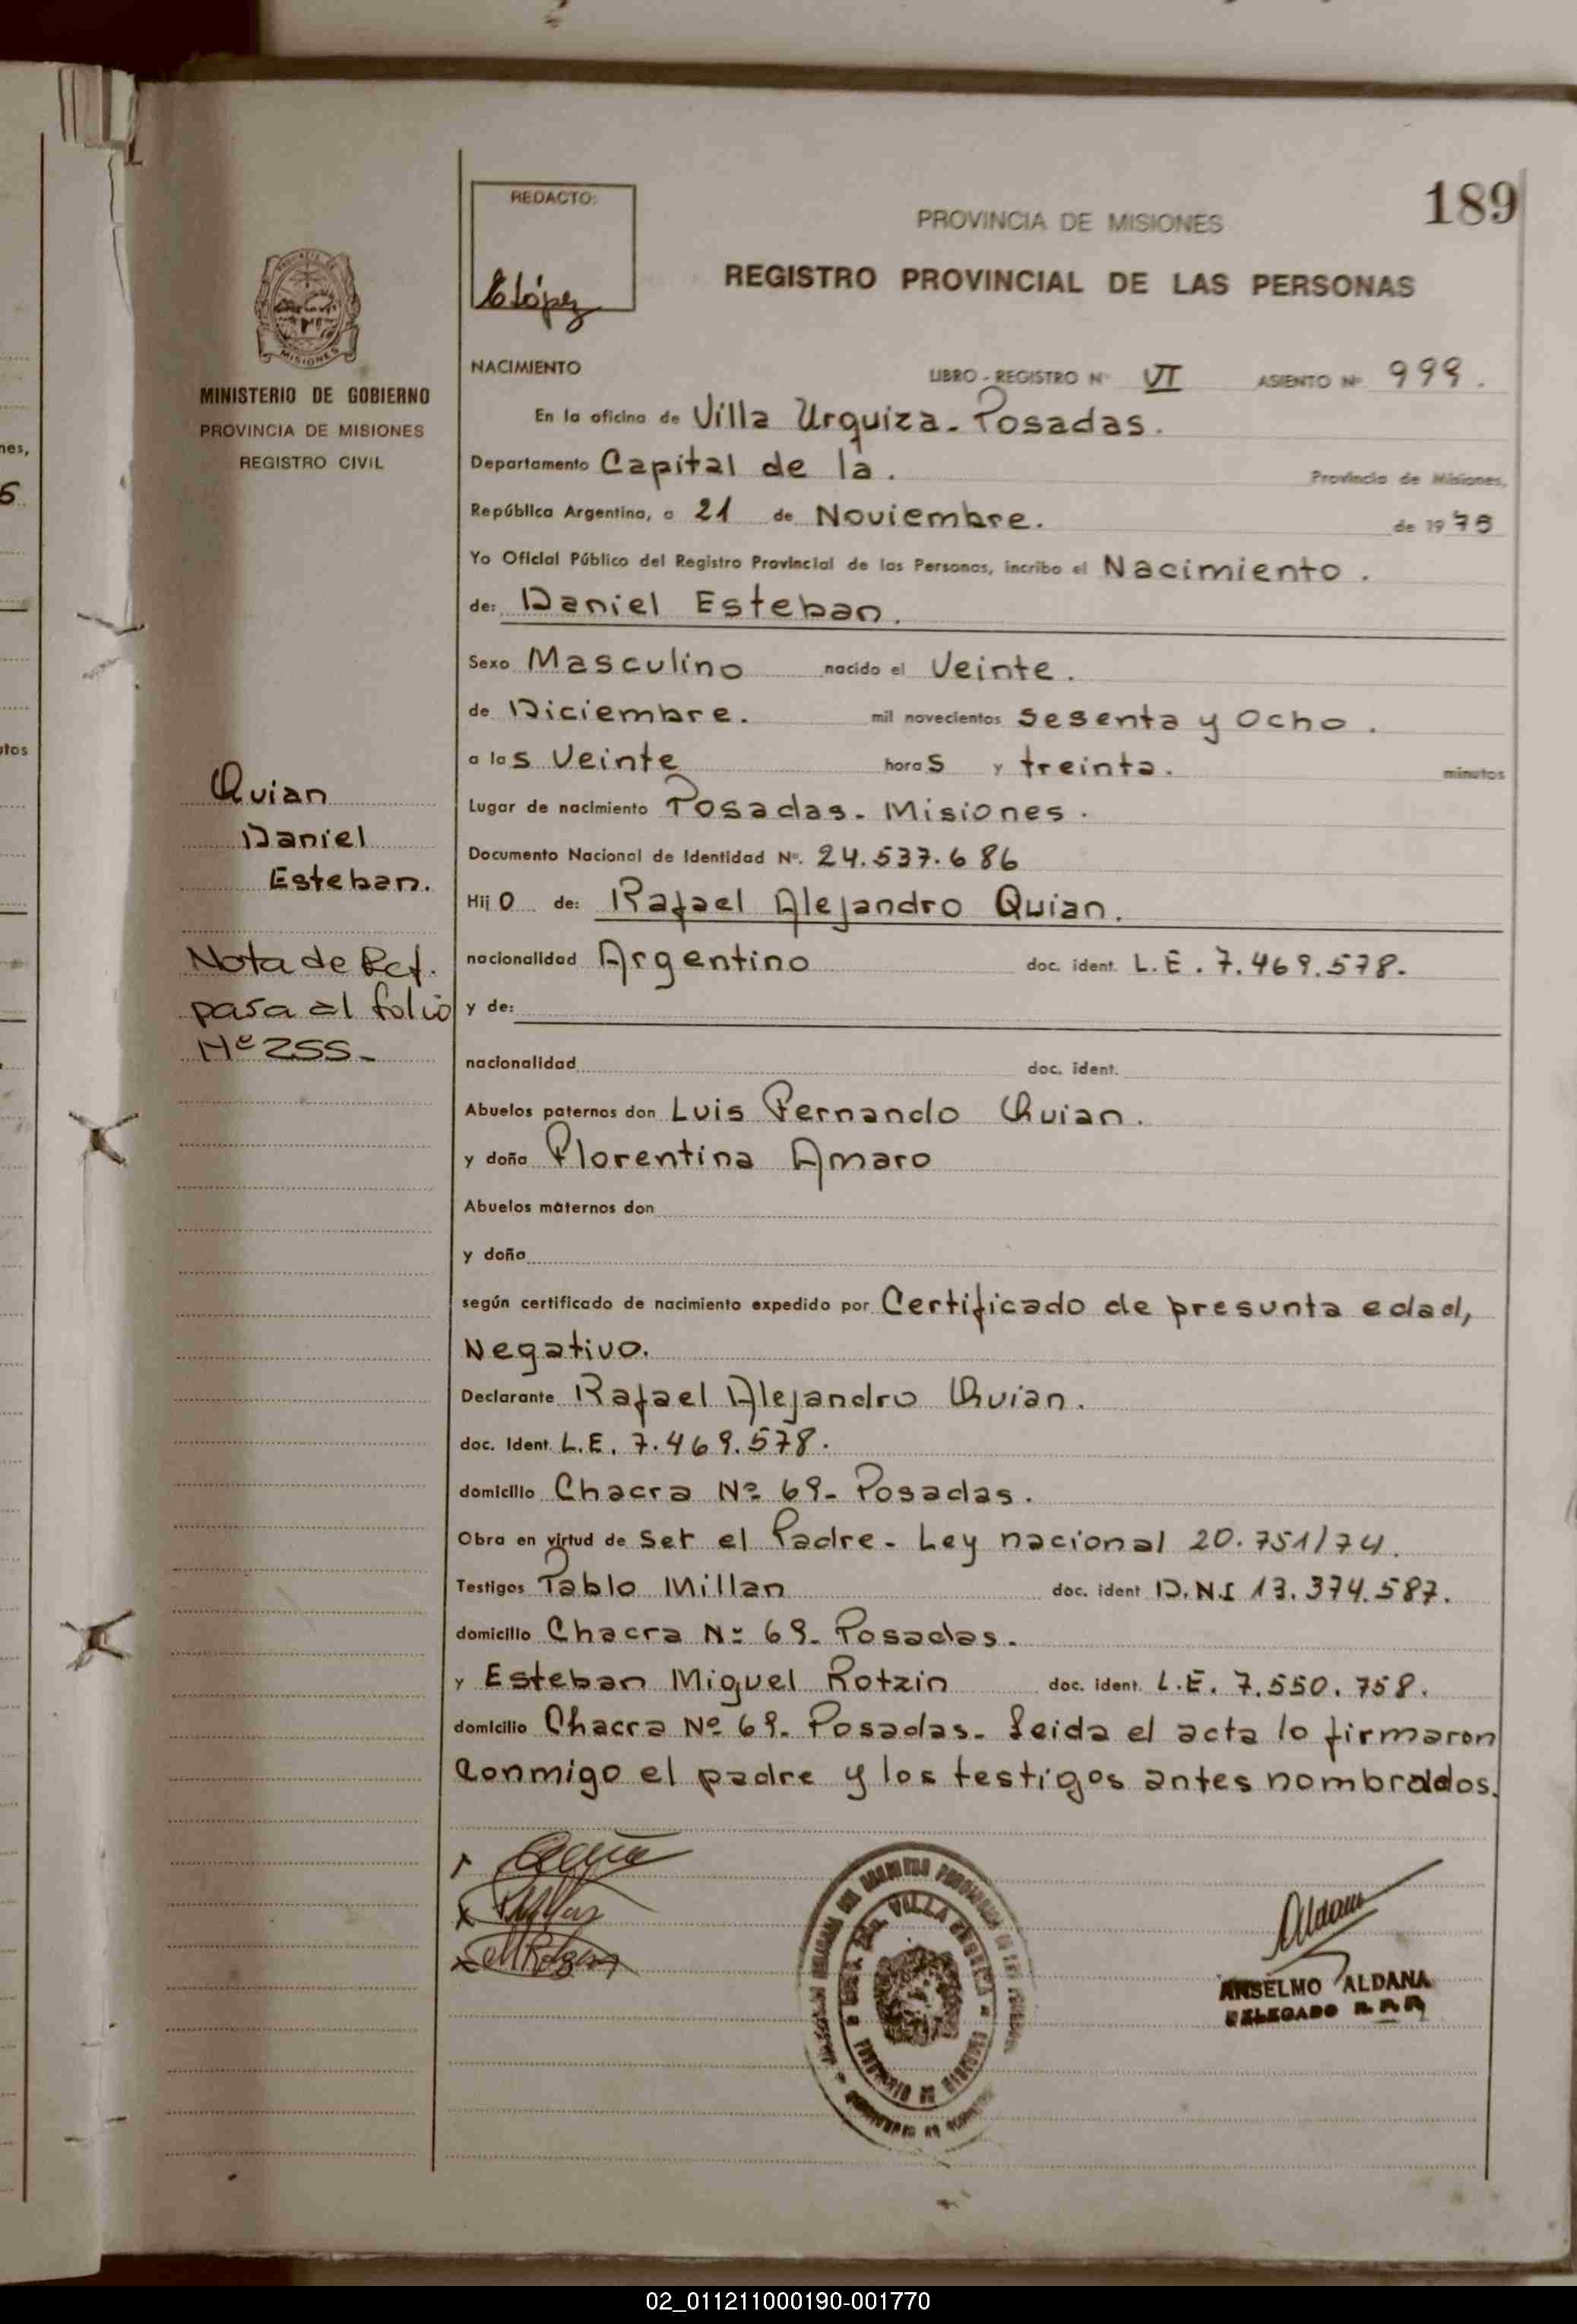 189
REDACTO:
E López
PROVINCIA DE MISIONES
REGISTRO PROVINCIAL DE LAS PERSONAS
MISIONES
MINISTERIO DE GOBIERNO
PROVINCIA DE MISIONES
REGISTRO CIVIL
NACIMIENTO LIBRO - REGISTRO Nº VI ASIENTO Nº 999.
En la oficina de Villa Urquiza - Posadas.
Departamento Capital de la. Provincia de Misiones,
República Argentina, a 21 de Noviembre. de 1975
Yo Oficial Público del Registro Provincial de las Personas, incribo el Nacimiento.
de: Daniel Esteban.
Sexo Masculino nacido el Veinte.
de Diciembre. mil novecientos sesenta y Ocho.
a las Veinte horas y treinta. minutos
Lugar de nacimiento Posadas - Misiones.
Documento Nacional de Identidad Nº. 24.537.686
Hijo de: Rafael Alejandro Quian.
nacionalidad Argentino doc. ident. L.E. 7.469.578.
y de:
nacionalidad doc. ident.
Abuelos paternos don Luis Fernando Quian.
y doña Florentina Amaro
Abuelos maternos don
y doña
según certificado de nacimiento expedido por Certificado de presunta edad,
Negativo.
Declarante Rafael Alejandro Quian.
doc. Ident. L.E. 7.469.578.
domicilio Chacra Nº 69 - Posadas.
Obra en virtud de ser el Padre - Ley nacional 20.751/74.
Testigos Pablo Millan doc. ident D.N.I 13.374.587.
domicilio Chacra Nº 69 - Posadas.
y Esteban Miguel Rotzin doc. ident. L.E. 7.550.758.
domicilio Chacra Nº 69 - Posadas - Leida el acta lo firmaron
Conmigo el padre y los testigos antes nombrados.
Quian
Daniel
Esteban.
Nota de Ref.
pasa al folio
Nº 255-
VILLA URQUIZA
ANSELMO ALDANA
DELEGADO
02_011211000190-001770